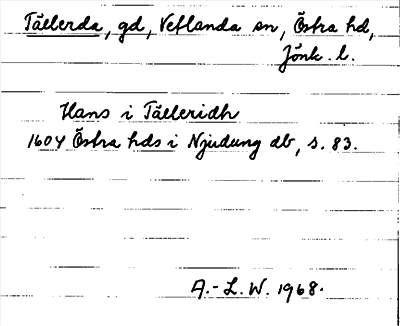 Tällerda, gd, Vetlanda sn, Östra hd,
Jönk. l.
Hans i Tälleridh
1604 Östra hds i Njudung db, s. 83.
A.-L. W. 1968.